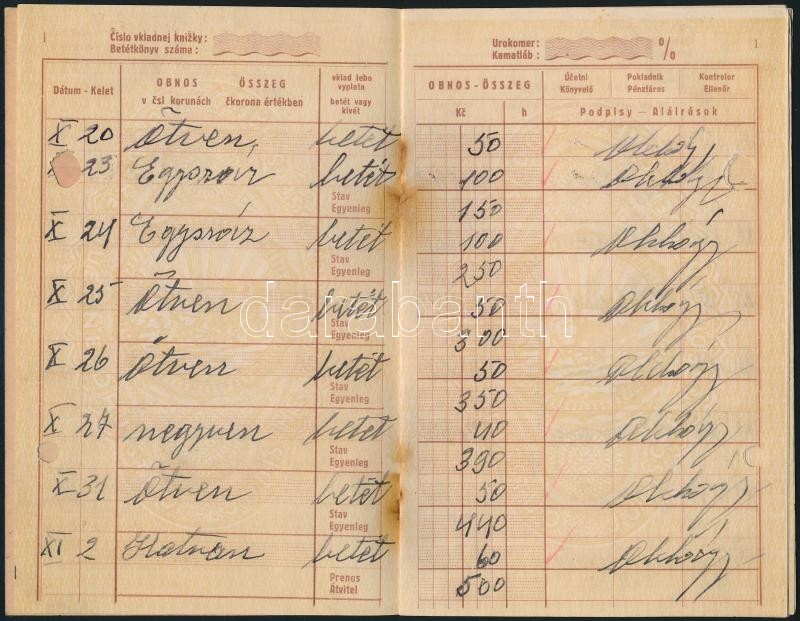 1
Číslo vkladnej knižky:
Betétkönyv száma:
Urokomer:
Kamatláb:
0/0
1
Dátum - Kelet
OBNOS ÖSSZEG
v čsl korunách čkorona értékben
vklad lebo
vyplata
betét vagy
kivét
OBNOS - ÖSSZEG
Kč h
Účetni
Könyvelő
Pokladnik
Pénztáros
Kontrolor
Ellenőr
Podpisy — Aláirások
X 20 Ötven, betét 50
23 Egyszáz betét 100
Stav
Egyenleg 150
X 24 Egyszáz betét 100
Stav
Egyenleg 250
X 25 Ötven betét 50
Stav
Egyenleg 300
X 26 Ötven betét 50
Stav
Egyenleg 350
X 27 negyven betét 40
Stav
Egyenleg 390
X 31 Ötven betét 50
Stav
Egyenleg 440
XI 2 Hatvan betét 60
Prenos
Átvitel 500
darabanth